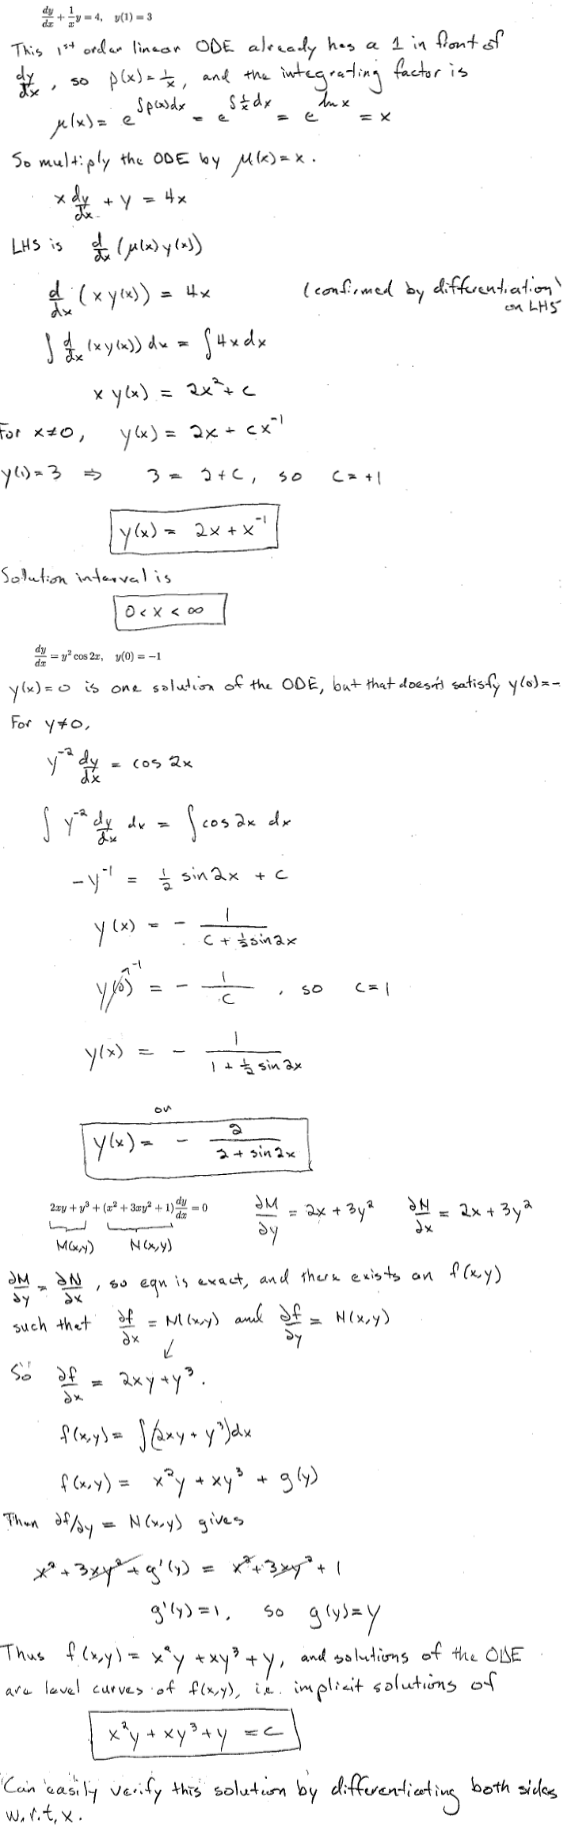 dy/dx + 1/x y = 4, y(1) = 3
This 1st order linear ODE already has a 1 in front of
dy/dx, so p(x) = 1/x, and the integrating factor is
μ(x) = e^∫p(x)dx = e^∫1/x dx = e^ln x = x
So multiply the ODE by μ(x) = x.
x dy/dx + y = 4x
LHS is d/dx (μ(x) y(x))
d/dx (x y(x)) = 4x (confirmed by differentiation on LHS)
∫ d/dx (x y(x)) dx = ∫ 4x dx
x y(x) = 2x² + c
For x≠0, y(x) = 2x + cx⁻¹
y(1) = 3 ⇒ 3 = 2 + C, so C = +1
y(x) = 2x + x⁻¹
Solution interval is
0 < x < ∞
dy/dx = y² cos 2x, y(0) = −1
y(x) = 0 is one solution of the ODE, but that doesn't satisfy y(0) = −
For y≠0,
y⁻² dy/dx = cos 2x
∫ y⁻² dy/dx dx = ∫ cos 2x dx
−y⁻¹ = 1/2 sin 2x + C
y(x) = − 1/(C + 1/2 sin 2x)
y(0) −1 = − 1/C, so C = 1
y(x) = − 1/(1 + 1/2 sin 2x)
or
y(x) = − 2/(2 + sin 2x)
2xy + y³ + (x² + 3xy² + 1) dy/dx = 0 ∂M/∂y = 2x + 3y² ∂N/∂x = 2x + 3y²
M(x,y) N(x,y)
∂M/∂y = ∂N/∂x, so eqn is exact, and there exists an f(x,y)
such that ∂f/∂x = M(x,y) and ∂f/∂y = N(x,y)
So ∂f/∂x = 2xy + y³.
f(x,y) = ∫(2xy + y³)dx
f(x,y) = x²y + xy³ + g(y)
Then ∂f/∂y = N(x,y) gives
x² + 3xy² + g'(y) = x² + 3xy² + 1
g'(y) = 1, so g(y) = y
Thus f(x,y) = x²y + xy³ + y, and solutions of the ODE
are level curves of f(x,y), i.e. implicit solutions of
x²y + xy³ + y = C
Can easily verify this solution by differentiating both sides
w.r.t. x.